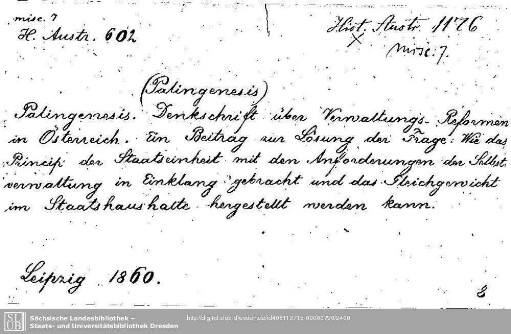 misc. 7
H. Austr. 602
Hist. Austr. 1176
misc. 7.
(Palingenesis)
Palingenesis. Denkschrift über Verwaltungs-Reformen
in Österreich. Ein Beitrag zur Lösung der Frage: Wie das
Princip der Staatseinheit mit den Anforderungen der Selbst-
verwaltung in Einklang gebracht und das Gleichgewicht
im Staatshaushalte hergestellt werden kann.
Leipzig 1860.
8
SLUB
Sächsische Landesbibliothek –
Staats- und Universitätsbibliothek Dresden